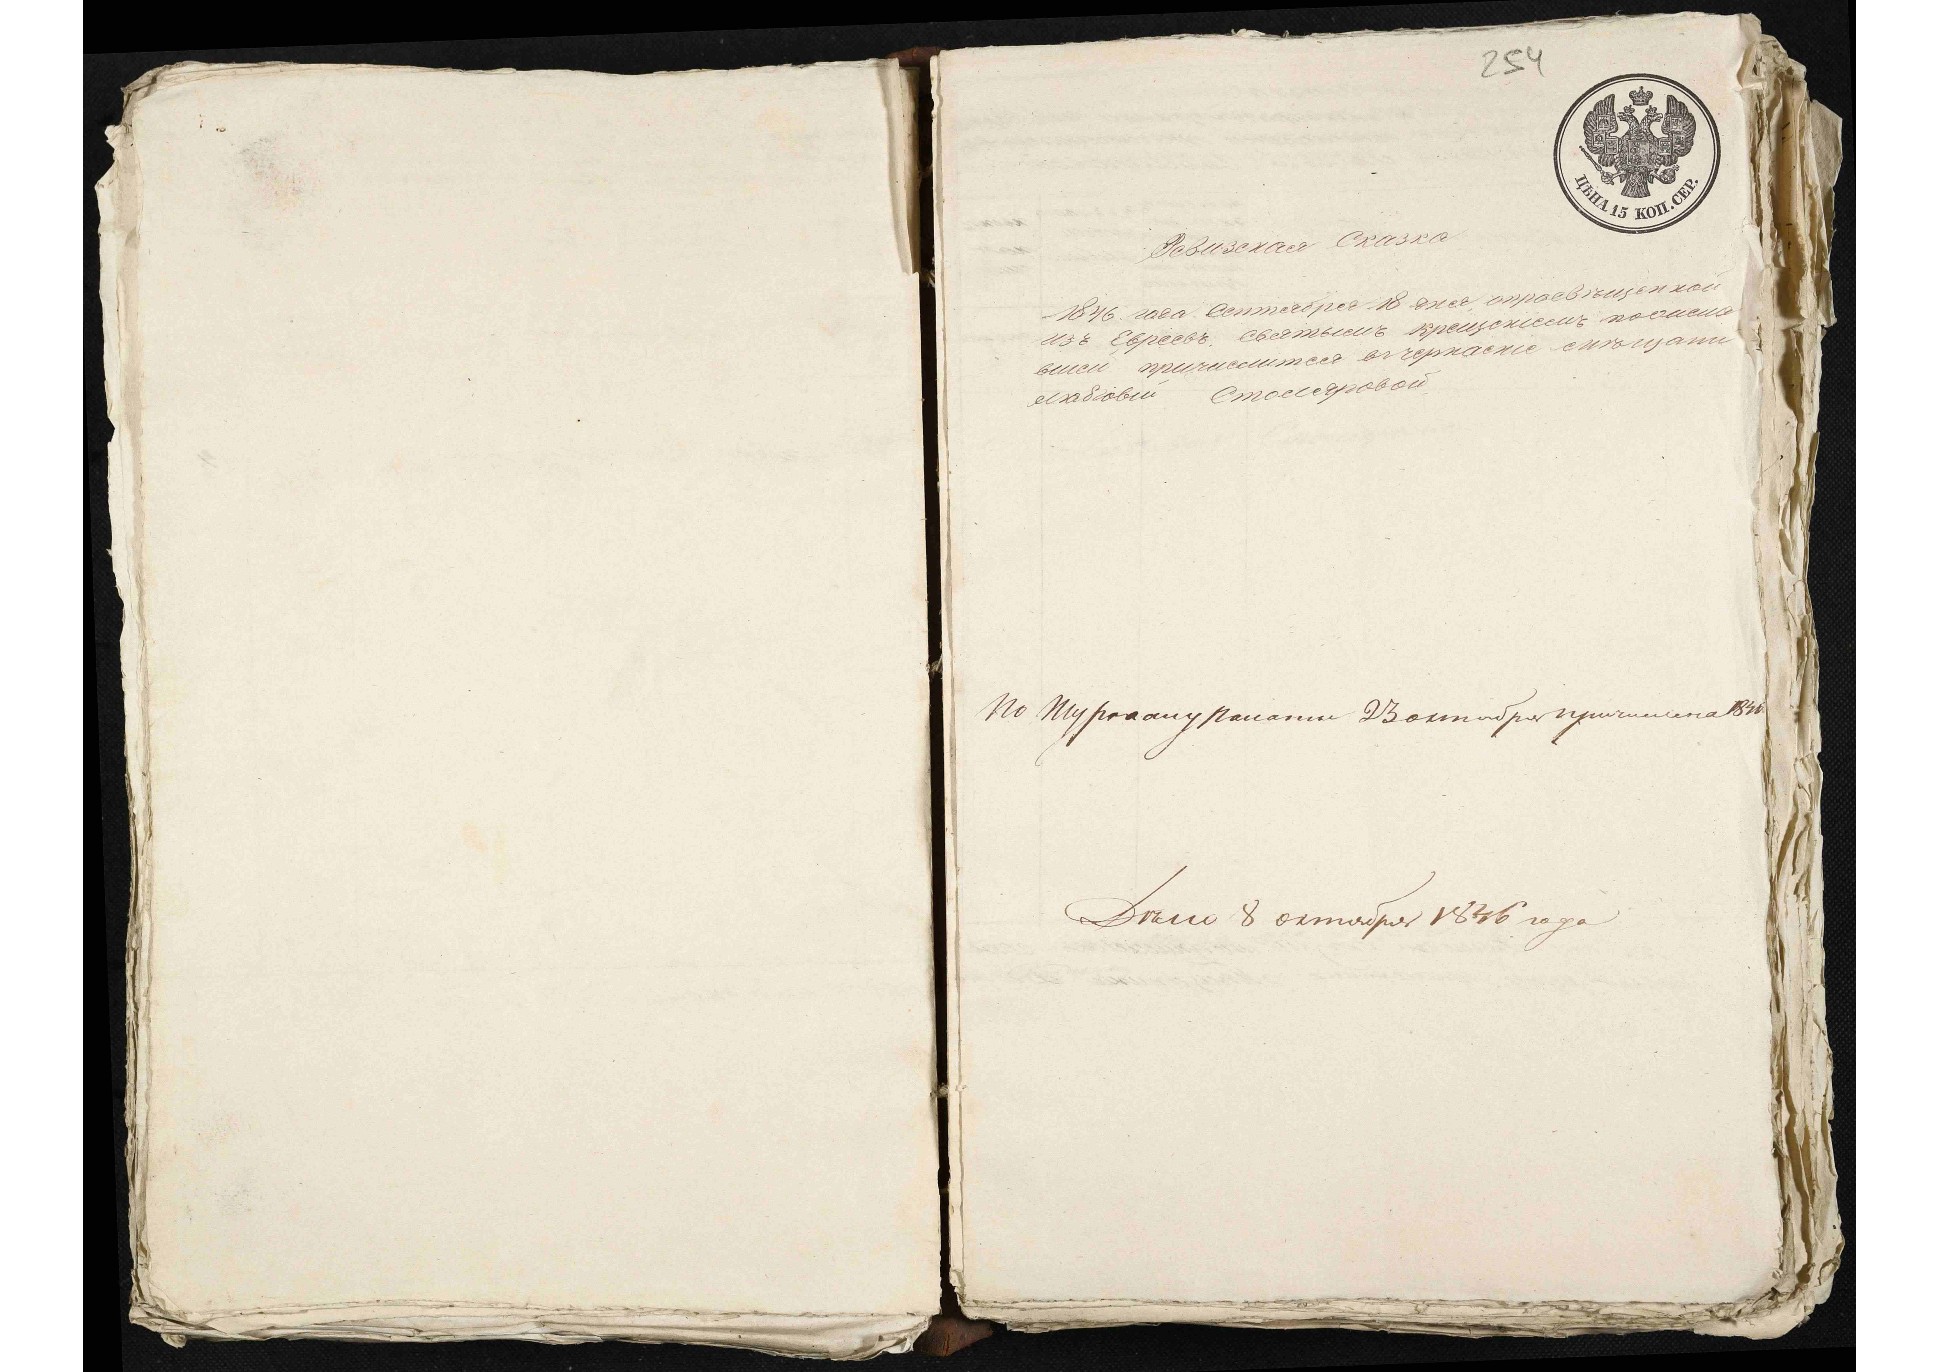 254
ЦѢНА 15 КОП. СЕР.
Ревизская Сказка
1846 года Сентября 18 дня, опросвѣщенной
изъ Евреевъ. святымъ крещениемъ
причислится вчеркаские
Столяровой
По Журналу Палаты 23 октября причислена 1846
Дѣло 8 октября 1846 года